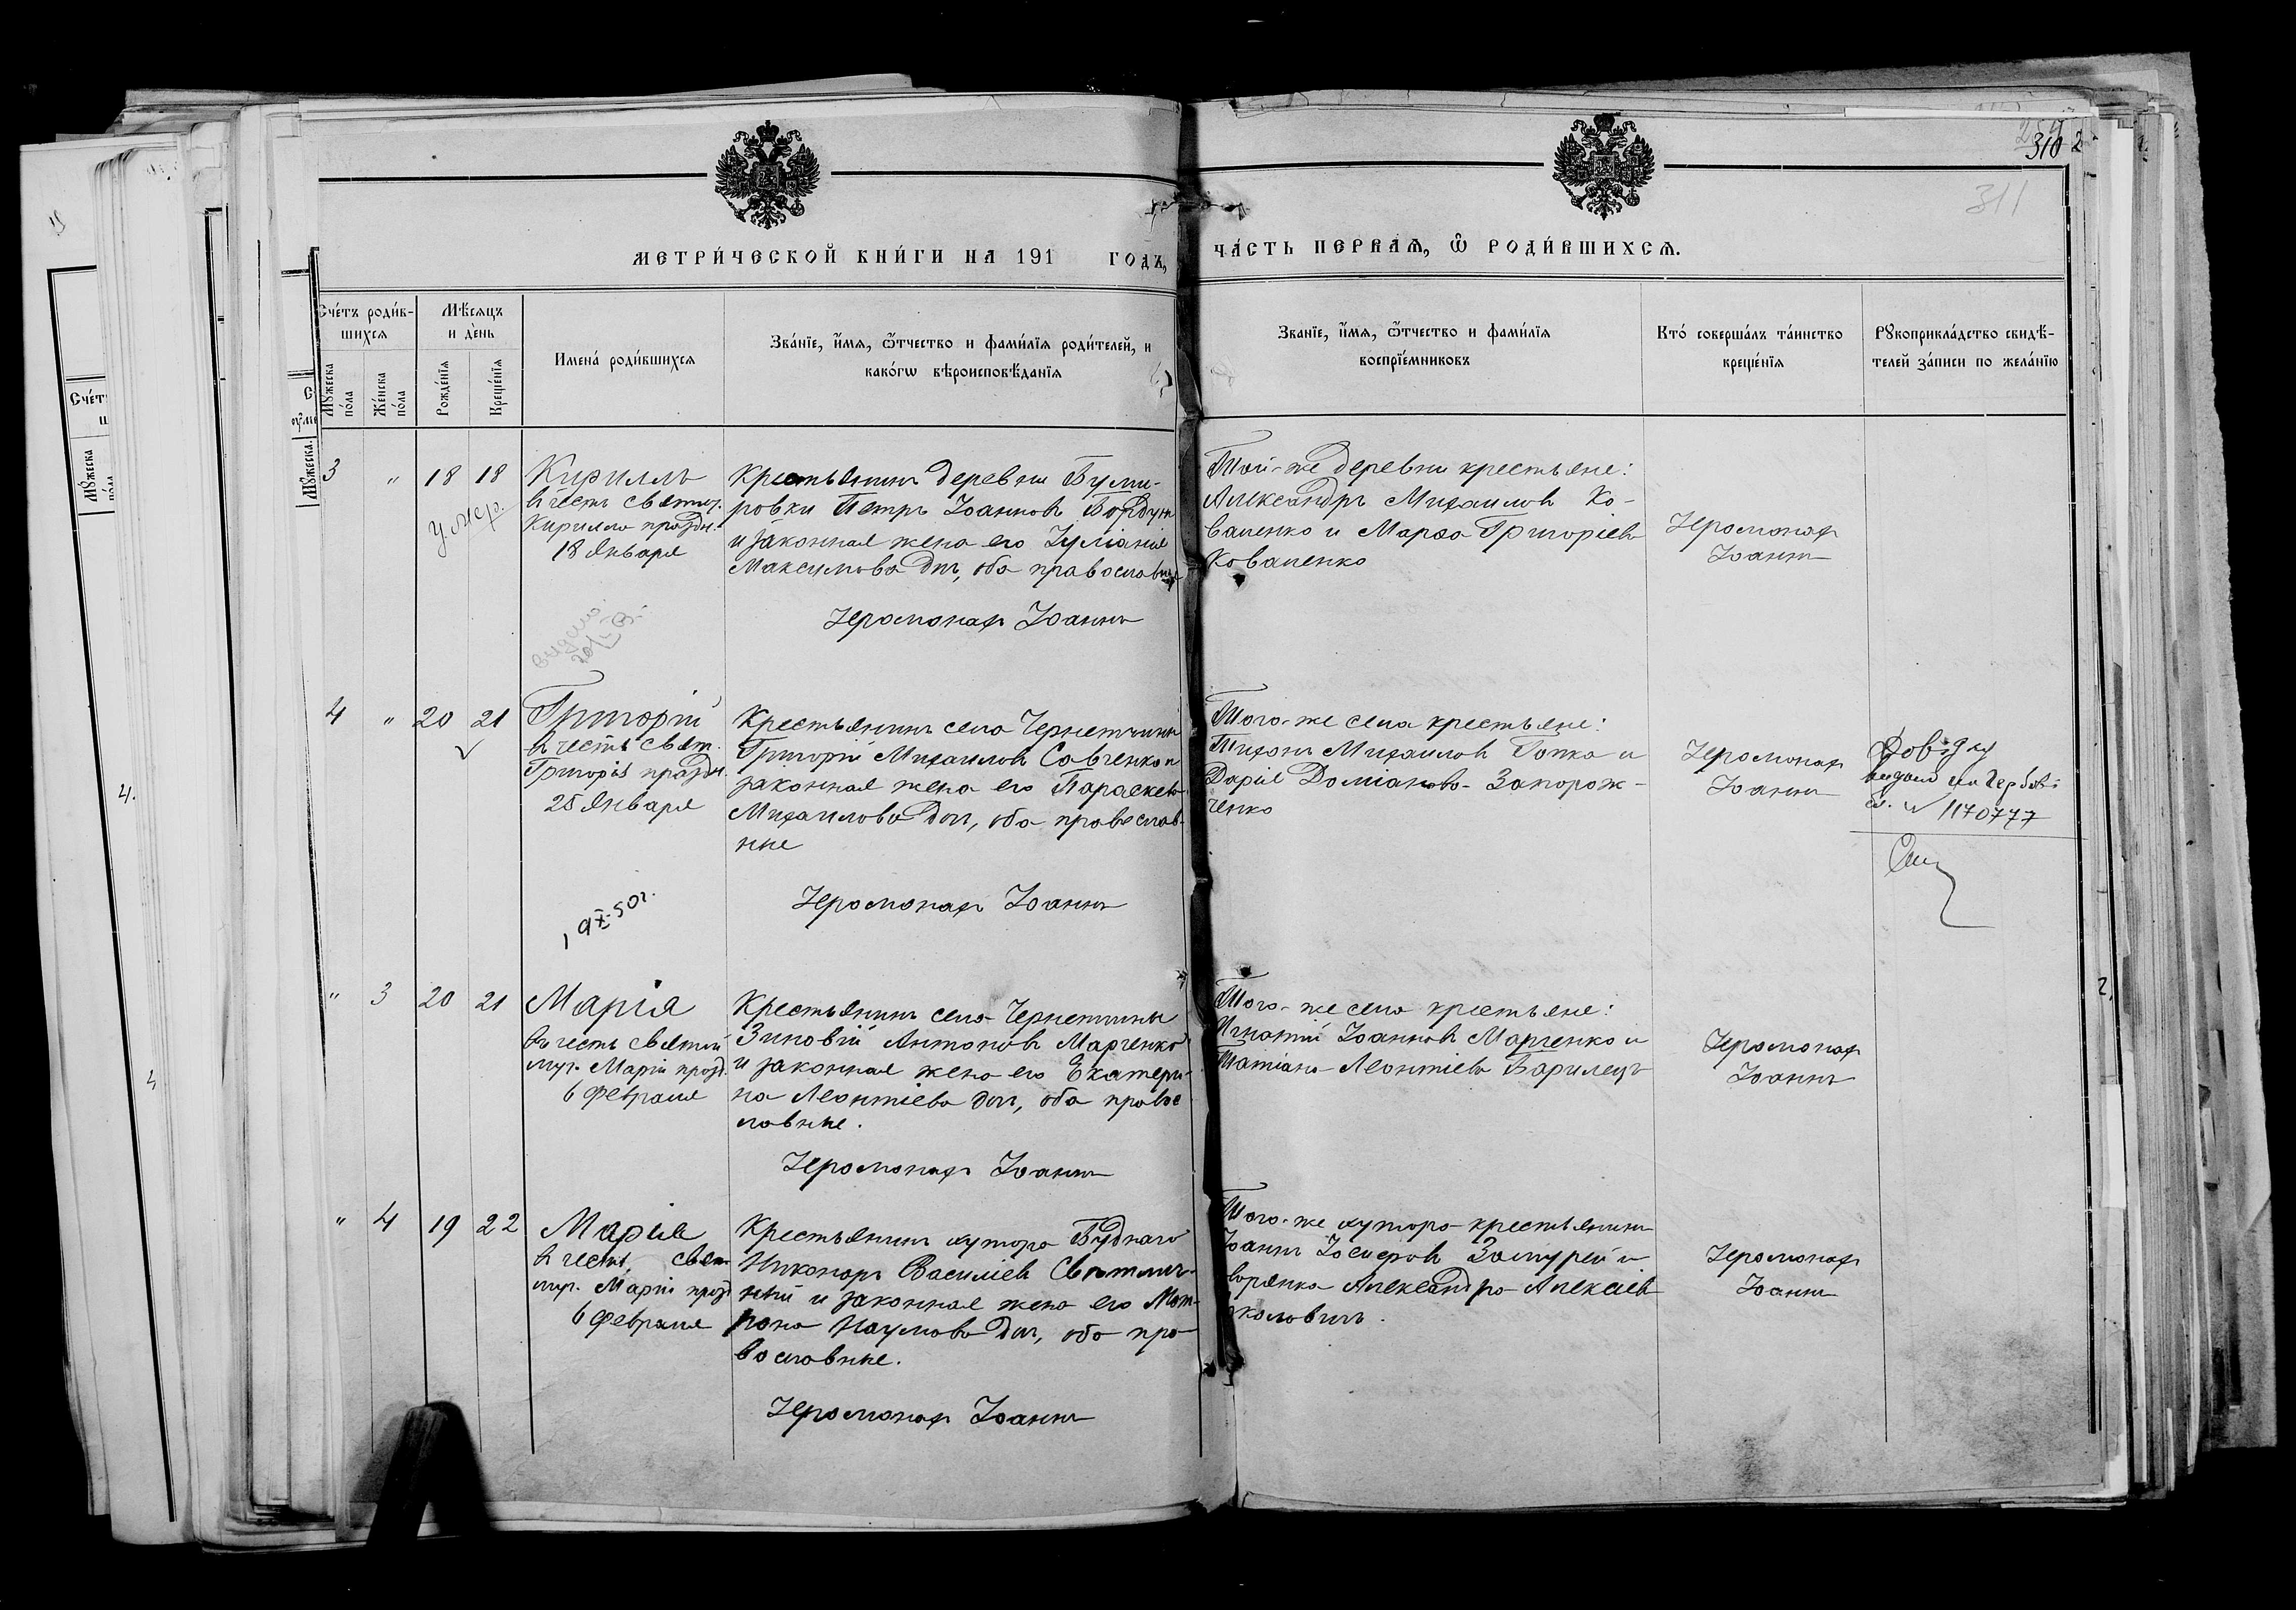 310
311
МЕТРИ́ЧЕСКОЙ КНИ́ГИ НА 191 ГОДЪ,
ЧА́СТЬ ПЕРВАѦ, Ѽ РОДИ́ВШИХСѦ.
Сче́тъ роди́в-
шихся
Мѣ́сяцъ
и де́нь
Мꙋ́жеска
по́ла
Же́нска
по́ла
Рожде́нїя
Креще́нїя
Имена́ роди́вшихся
Зва́нїе, и҆́мя, ѻ҆́тчество и фами́лїя роди́телей, и
како́гѡ вѣроисповѣ́данїя
Званїе, и҆́мя, ѻ҆́тчество и фами́лїя
воспрїе́мниковъ
Кто́ соверша́лъ та́инство
креще́нїя
Рꙋкоприкла́дство свидѣ́-
телей за́писи по жела́нїю
3 " 18 18
умер.
Кириллъ
въ честь святог.
Кирилла праздн.
18 Января
Крестьянинъ деревни
ровки Петръ Іоанновъ
и законная жена его Іуліанія
Максимова дщ, оба православные
Іеромонахъ Іоаннъ
Той-же деревни крестьяне:
Александръ Михаиловъ Ко-
валенко и Марфа Григоріева
Коваленко
Іеромонахъ
Іоаннъ
4 " 20 21
Григорій
въ честь свят.
Григорія праздн.
25 Января
19 X-50г.
Крестьянинъ села Чернетчины
Григорій Михаиловъ Савченко и
законная жена его Параскева
Михаилова дщ, оба православ-
ные
Іеромонахъ Іоаннъ
Того-же села крестьяне:
Тихонъ Михаиловъ Гопка и
Дарія Доміанова Запорож-
ченко
Іеромонахъ
Іоаннъ
Довідку
видано
1170777
" 3 20 21
Марія
въ честь святой
муч. Маріи празд.
6 Февраля
Крестьянинъ села Чернетчины
Зиновій Антоновъ Марченко
и законная жена его Екатери-
на Леонтіева дщ, оба правос
лавные.
Іеромонахъ Іоаннъ
Того-же села крестьяне:
Игнатій Іоанновъ Марченко и
Татіана Леонтіева Барилецъ
Іеромонахъ
Іоаннъ
" 4 19 22
Марія
въ честь свят.
муч. Маріи празд
6 Февраля
Крестьянинъ хутора Буднаго
Никоноръ Василіевъ Свѣтлич-
ный и законная жена его Мат-
рона Наумова дщ, оба пра-
вославные.
Іеромонахъ Іоаннъ
Того-же хутора крестьянинъ
Іоаннъ Іосифовъ и
Александра Алексіева
Іеромонахъ
Іоаннъ